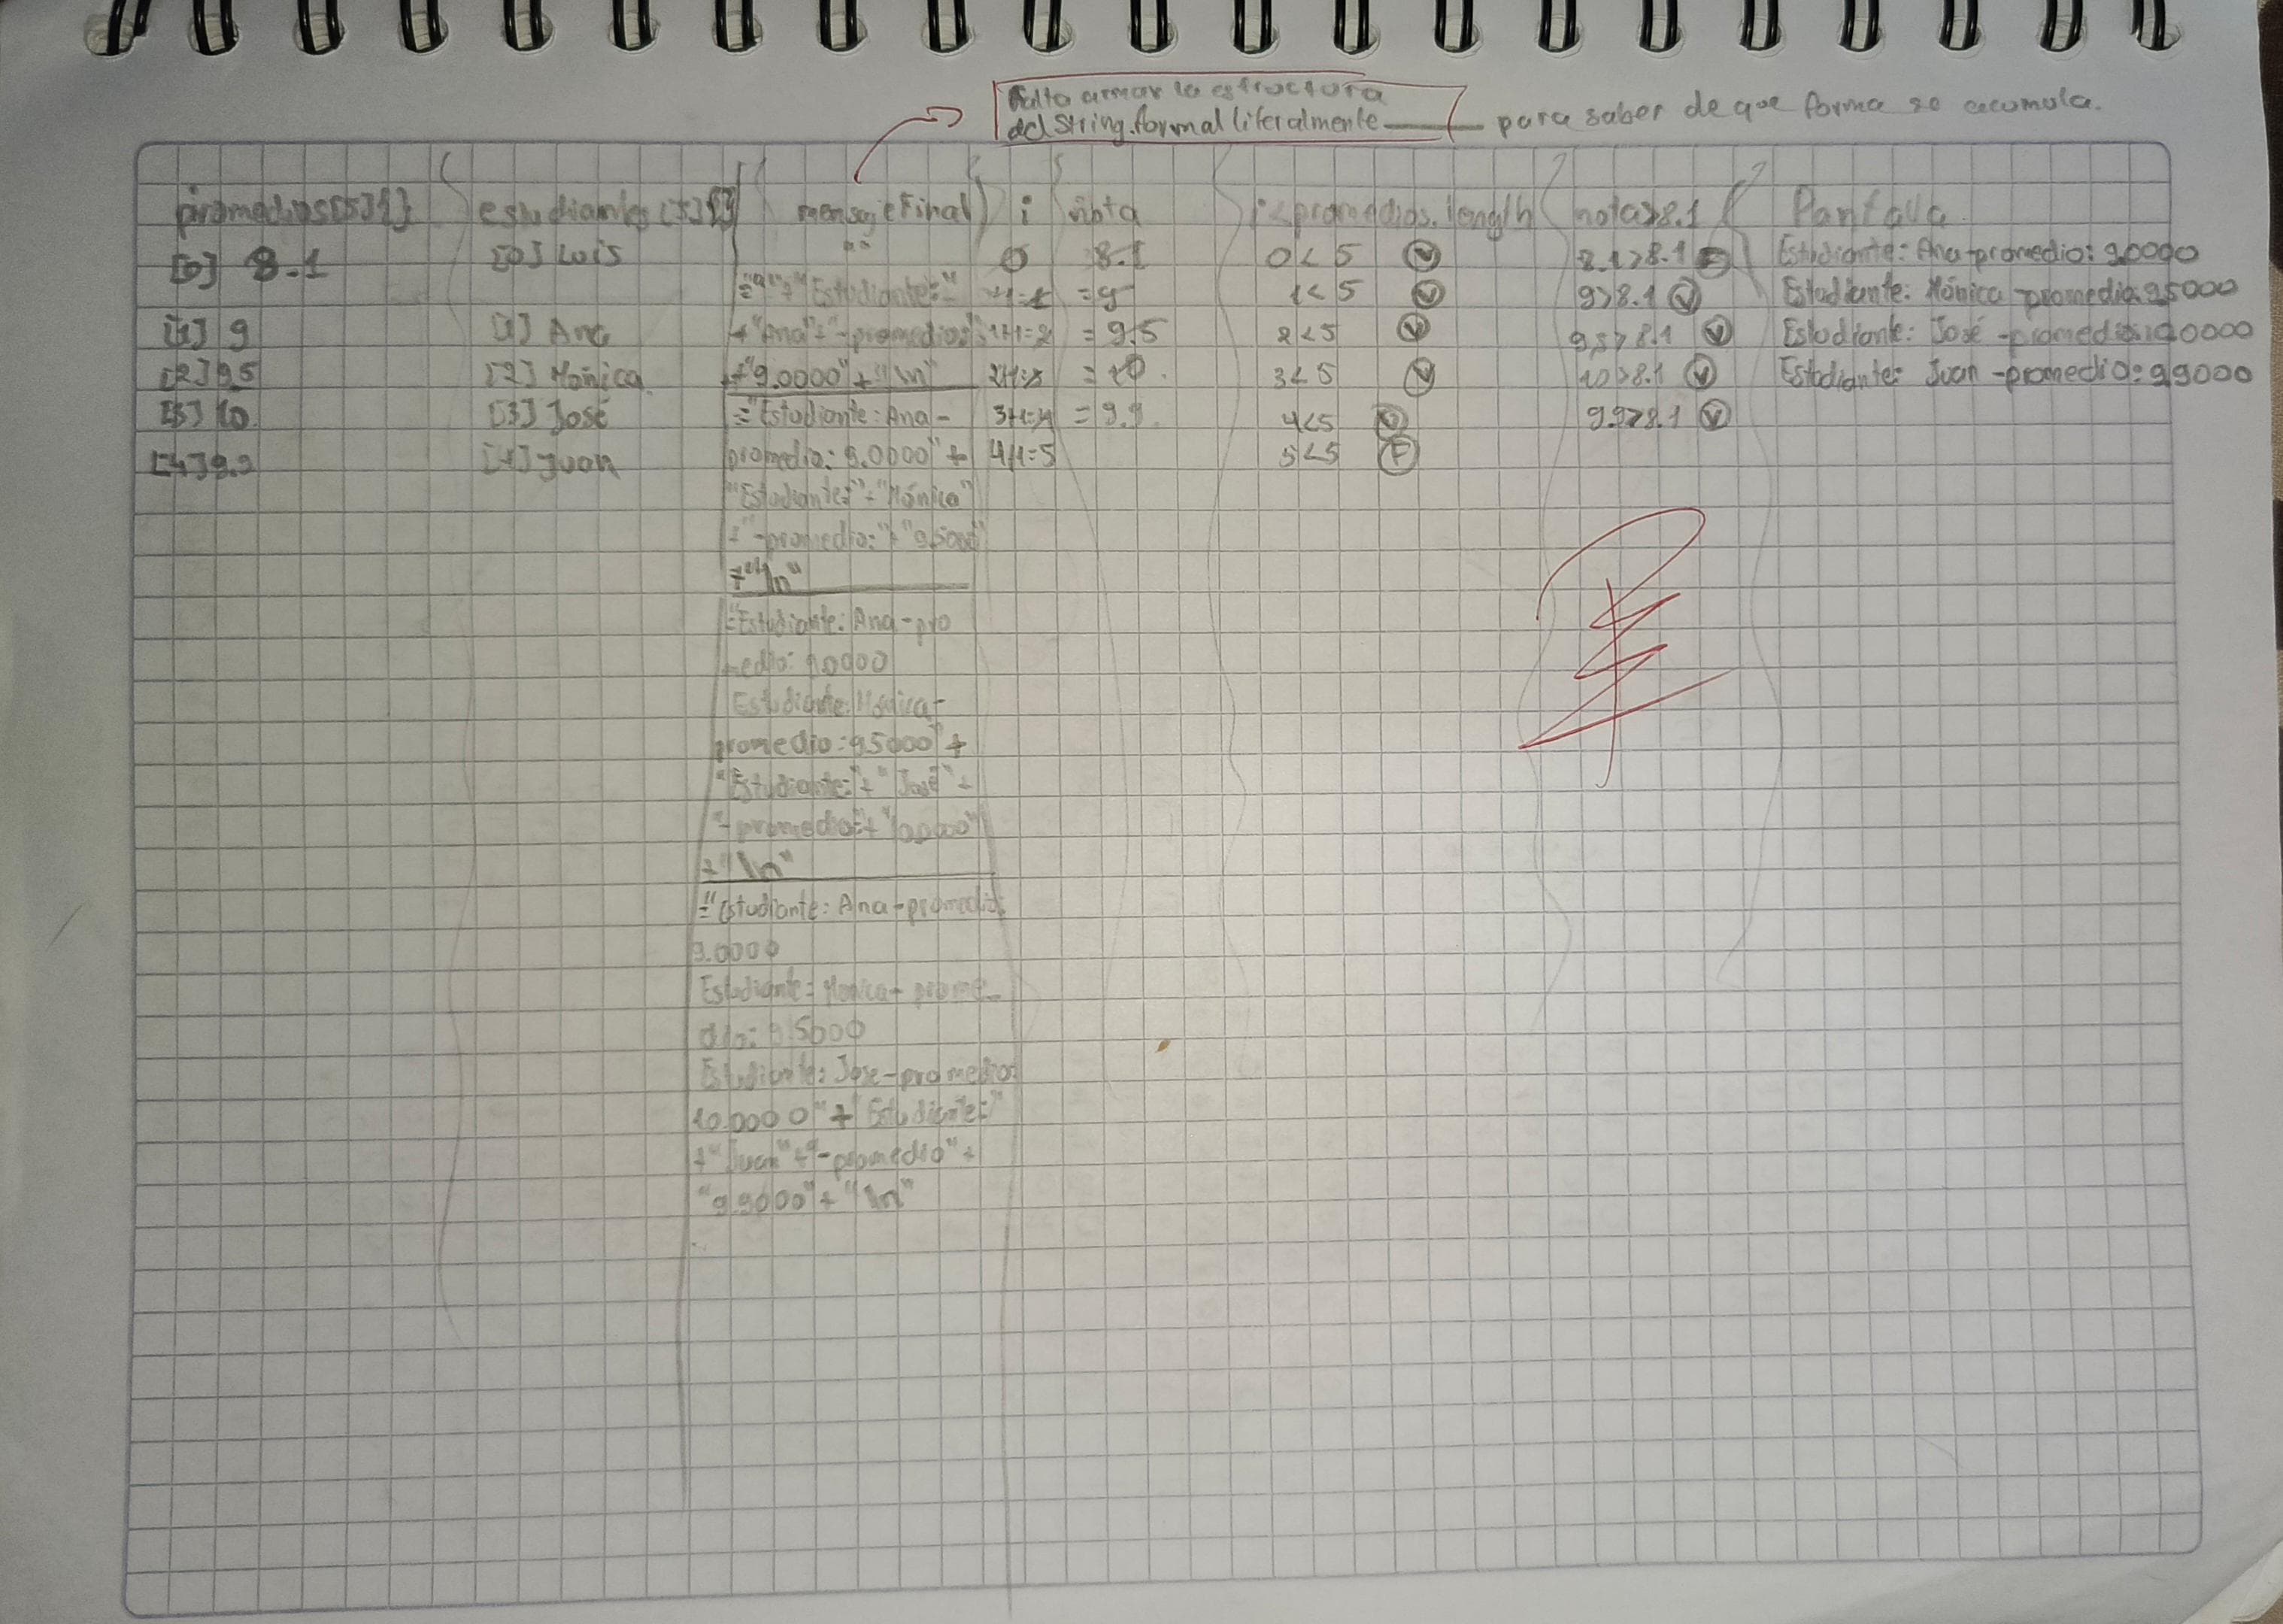 Falta armar la estructura
del String.format literalmente para saber de que forma se acumula.
promedios[5]{} estudiantes[5]{} mensajeFinal i nota i<promedios.length nota>8.1 Pantalla
[0] 8.1 [0] Luis "" 0 8.1 0<5 V 8.1>8.1 F Estudiante: Ana-promedio: 9.0000
=""+"Estudiante:" +1=1 =9 1<5 V 9>8.1 V Estudiante: Mónica -promedio: 9.5000
[1] 9 [1] Ana +"Ana"+"-promedio: 1+1=2 =9.5 2<5 V 9.5>8.1 V Estudiante: José -promedio: 10.0000
[2] 9.5 [2] Mónica +"9.0000"+"\n" 2+1=3 =10 3<5 V 10>8.1 V Estudiante: Juan -promedio: 9.9000
[3] 10 [3] José ="Estudiante: Ana- 3+1=4 =9.9 4<5 V 9.9>8.1 V
[4] 9.9 [4] Juan promedio: 9.0000"+ 4+1=5 5<5 F
"Estudiante:"+"Mónica"
+"-promedio:"+"9.5000"
+"\n"
="Estudiante: Ana-pro
medio: 9.0000
Estudiante: Mónica-
promedio: 9.5000"+
"Estudiante:"+"José"+
"-promedio:"+"10.0000"
+"\n"
="Estudiante: Ana-promedio:
9.0000
Estudiante: Monica-prome-
dio: 9.5000
Estudiante: Jose-promedio:
10.0000"+"Estudiante:"
+"Juan"+"-promedio"+
"9.9000"+"\n"